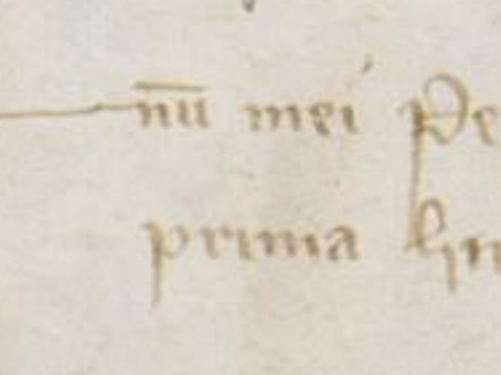 nu̅ mei Pe
prima lin